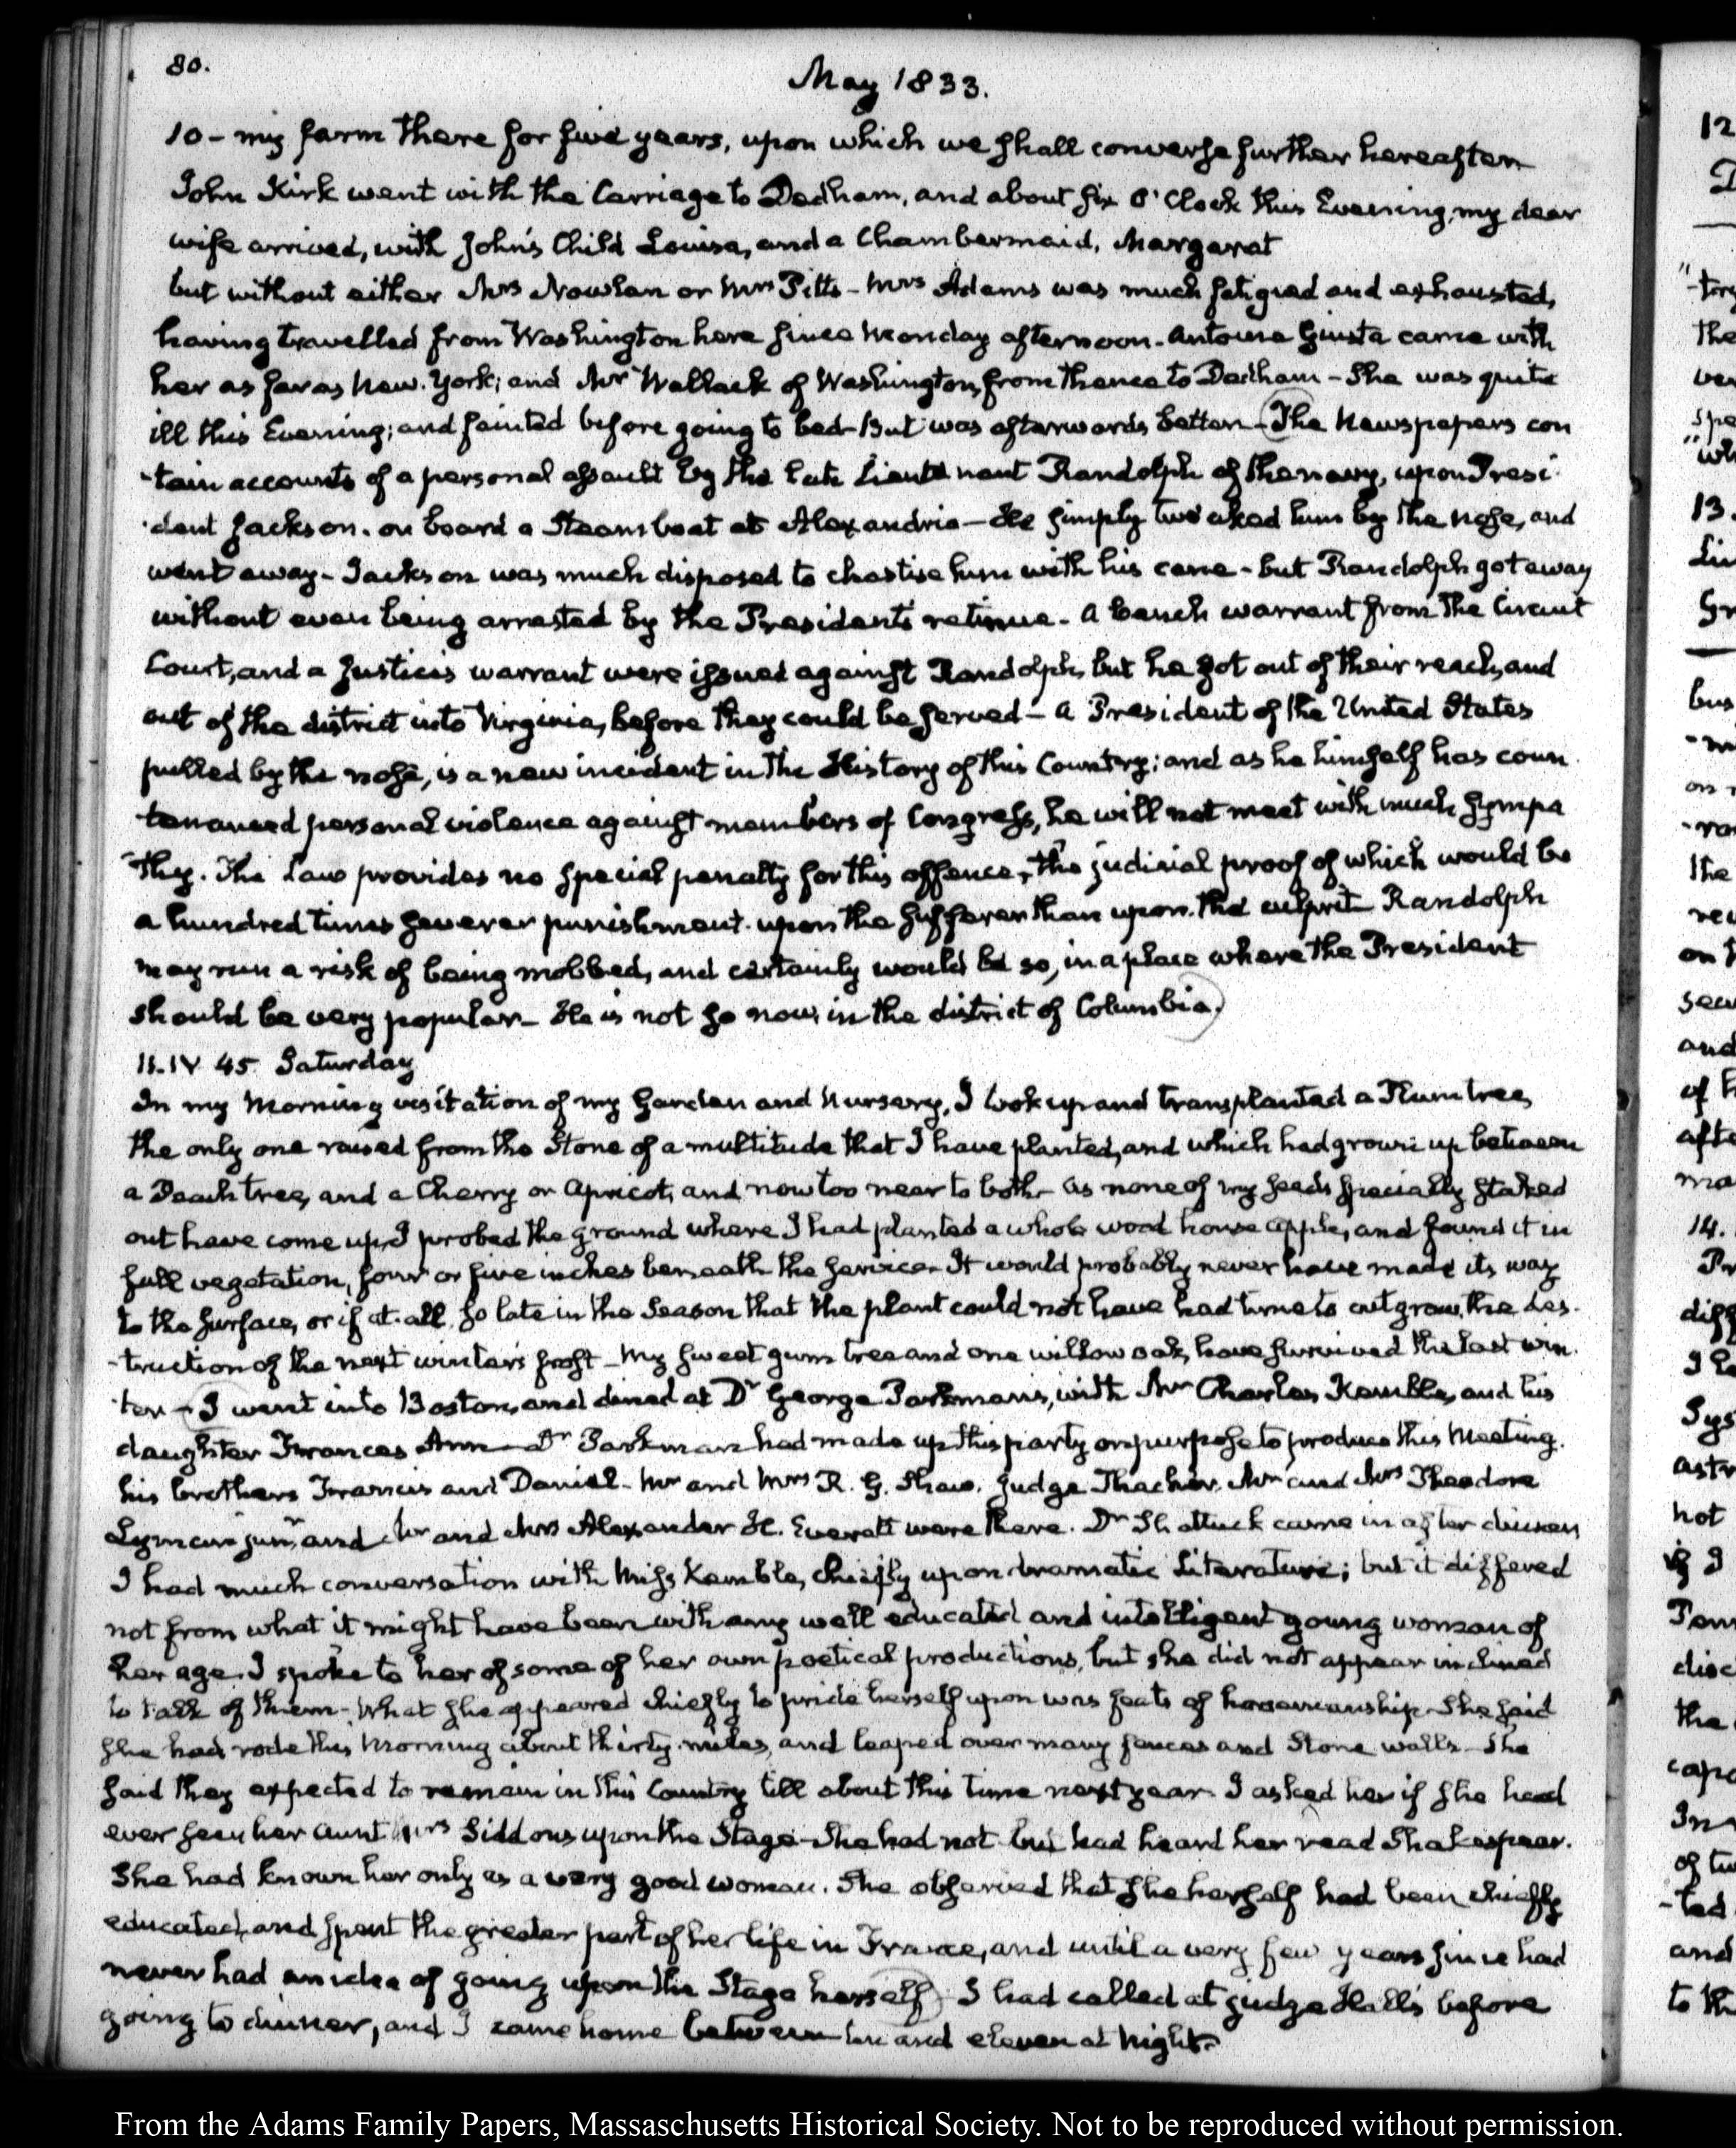 80.
May 1833.
10 - my farm there for five years, upon which we shall converse further hereafter
John Kirk went with the Carriage to Dedham, and about six O'Clock this Evening, my dear
wife arrived, with John's Child Louisa, and a Chambermaid, Margaret
but without either Mrs Nowlan or Mrs Pitts - Mrs Adams was much fatigued and exhausted,
having travelled from Washington here since Monday afternoon. Antoine Giusta came with
her as far as New-York; and Mr Wallack of Washington, from thence to Dedham - She was quite
ill this Evening; and fainted before going to bed - But was afterwards better - The Newspapers con
-tain accounts of a personal assault by the late Lieutenant Randolph of the navy, upon Presi-
-dent Jackson. on board a Steam boat at Alexandria - He simply tweaked him by the nose, and
went away - Jackson was much disposed to chastise him with his cane - but Randolph got away
without even being arrested by the President's retinue - A bench warrant from the Circuit
Court, and a Justice's warrant were issued against Randolph, but he got out of their reach, and
out of the district into Virginia, before they could be served - A President of the United States
pulled by the nose, is a new incident in the History of this Country; and as he himself has coun-
tenanced personal violence against members of Congress, he will not meet with much sympa
-thy. The Law provides no special penalty for this offence, the judicial proof of which would be
a hundred times severer punishment upon the sufferer than upon the culprit Randolph
may run a risk of being mobbed, and certainly would be so, in a place where the President
should be very popular - He is not so now, in the district of Columbia.
11. IV 45. Saturday
In my Morning visitation of my Garden and Nursery, I took up and transplanted a Plum tree,
the only one raised from the Stone of a multitude that I have planted, and which had grown up between
a Peach tree, and a Cherry or Apricot, and now too near to both - As none of my seeds specially staked
out have come up, I probed the ground where I had planted a whole wood house apple, and found it in
full vegetation, four or five inches beneath the service - It would probably never have made its way
to the surface, or if at all, so late in the Season that the plant could not have had time to outgrow the des-
-truction of the next winter's frost - My sweet gum tree and one willow oak, have survived the last win-
-ter - I went into Boston, and dined at Dr George Parkman's, with Mr Charles Kemble, and his
daughter Frances Ann - Dr Parkman had made up this party on purpose to produce this Meeting.
his brothers Francis and Daniel - Mr and Mrs R. G. Shaw. Judge Thacher, Mr and Mrs Theodore
Lyman junr, and Mr and Mrs Alexander H. Everett were there. Dr Shattuck came in after dinner,
I had much conversation with Miss Kemble, chiefly upon dramatic Literature; but it differed
not from what it might have been with any well educated and intelligent young woman of
her age. I spoke to her of some of her own poetical productions, but she did not appear inclined
to talk of them - What she appeared chiefly to pride herself upon was feats of horsemanship - She said
she had rode this Morning about thirty miles, and leaped over many fences and Stone walls - She
said they expected to remain in this Country till about this time next year. I asked her if she had
ever seen her aunt Mrs Siddons upon the Stage - She had not but had heard her read Shakespear.
She had known her only as a very good woman. She observed that she herself had been chiefly
educated, and spent the greater part of her life in France, and until a very few years since had
never had an idea of going upon the Stage herself) I had called at Judge Hall's before
going to dinner, and I came home between ten and eleven at Night.
12
13.
14.
From the Adams Family Papers, Massachusetts Historical Society. Not to be reproduced without permission.